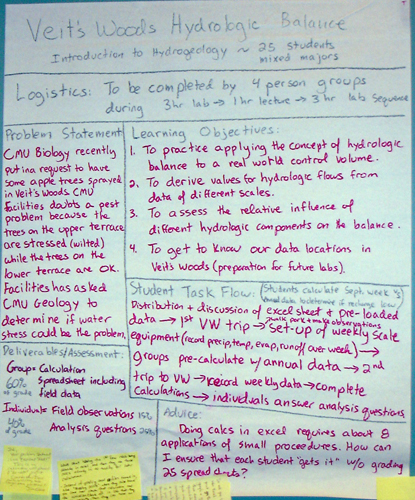 Veit's Woods Hydrologic Balance
Introduction to Hydrogeology ~ 25 students
mixed majors
Logistics: To be completed by 4 person groups
during 3hr lab → 1hr lecture → 3hr lab sequence
Problem Statement
CMU Biology recently
put in a request to have
some apple trees sprayed
in Veit's Woods. CMU
Facilities doubts a pest
problem because the
trees on the upper terrace
are stressed (wilted)
while the trees on the
lower terrace are OK.
Facilities has asked
CMU Geology to
determine if water
stress could be the problem.
Learning Objectives:
1. To practice applying the concept of hydrologic
balance to a real world control volume.
2. To derive values for hydrologic flows from
data of different scales.
3. To assess the relative influence of
different hydrologic components on the balance.
4. To get to know our data locations in
Veit's Woods (preparation for future labs).
Student Task Flow:
Students calculate Sept. week vs
annual data to determine if recharge low
Distribution + discussion of excel sheet + pre-loaded
data → 1st VW trip → set-up of weekly scale
walk park + make observations
equipment (record precip, temp, evap, runoff over week) →
groups pre-calculate w/ annual data → 2nd
trip to VW → record weekly data → complete
calculations → individuals answer analysis questions
Deliverables/Assessment:
Group: Calculation
60% of grade
spreadsheet including
field data
Individual: Field observations 15%
40% of grade
Analysis questions 25%
Advice:
Doing calcs in excel requires about 8
applications of small proceedures. How can
I ensure that each student "gets it" w/o grading
25 spread shts?